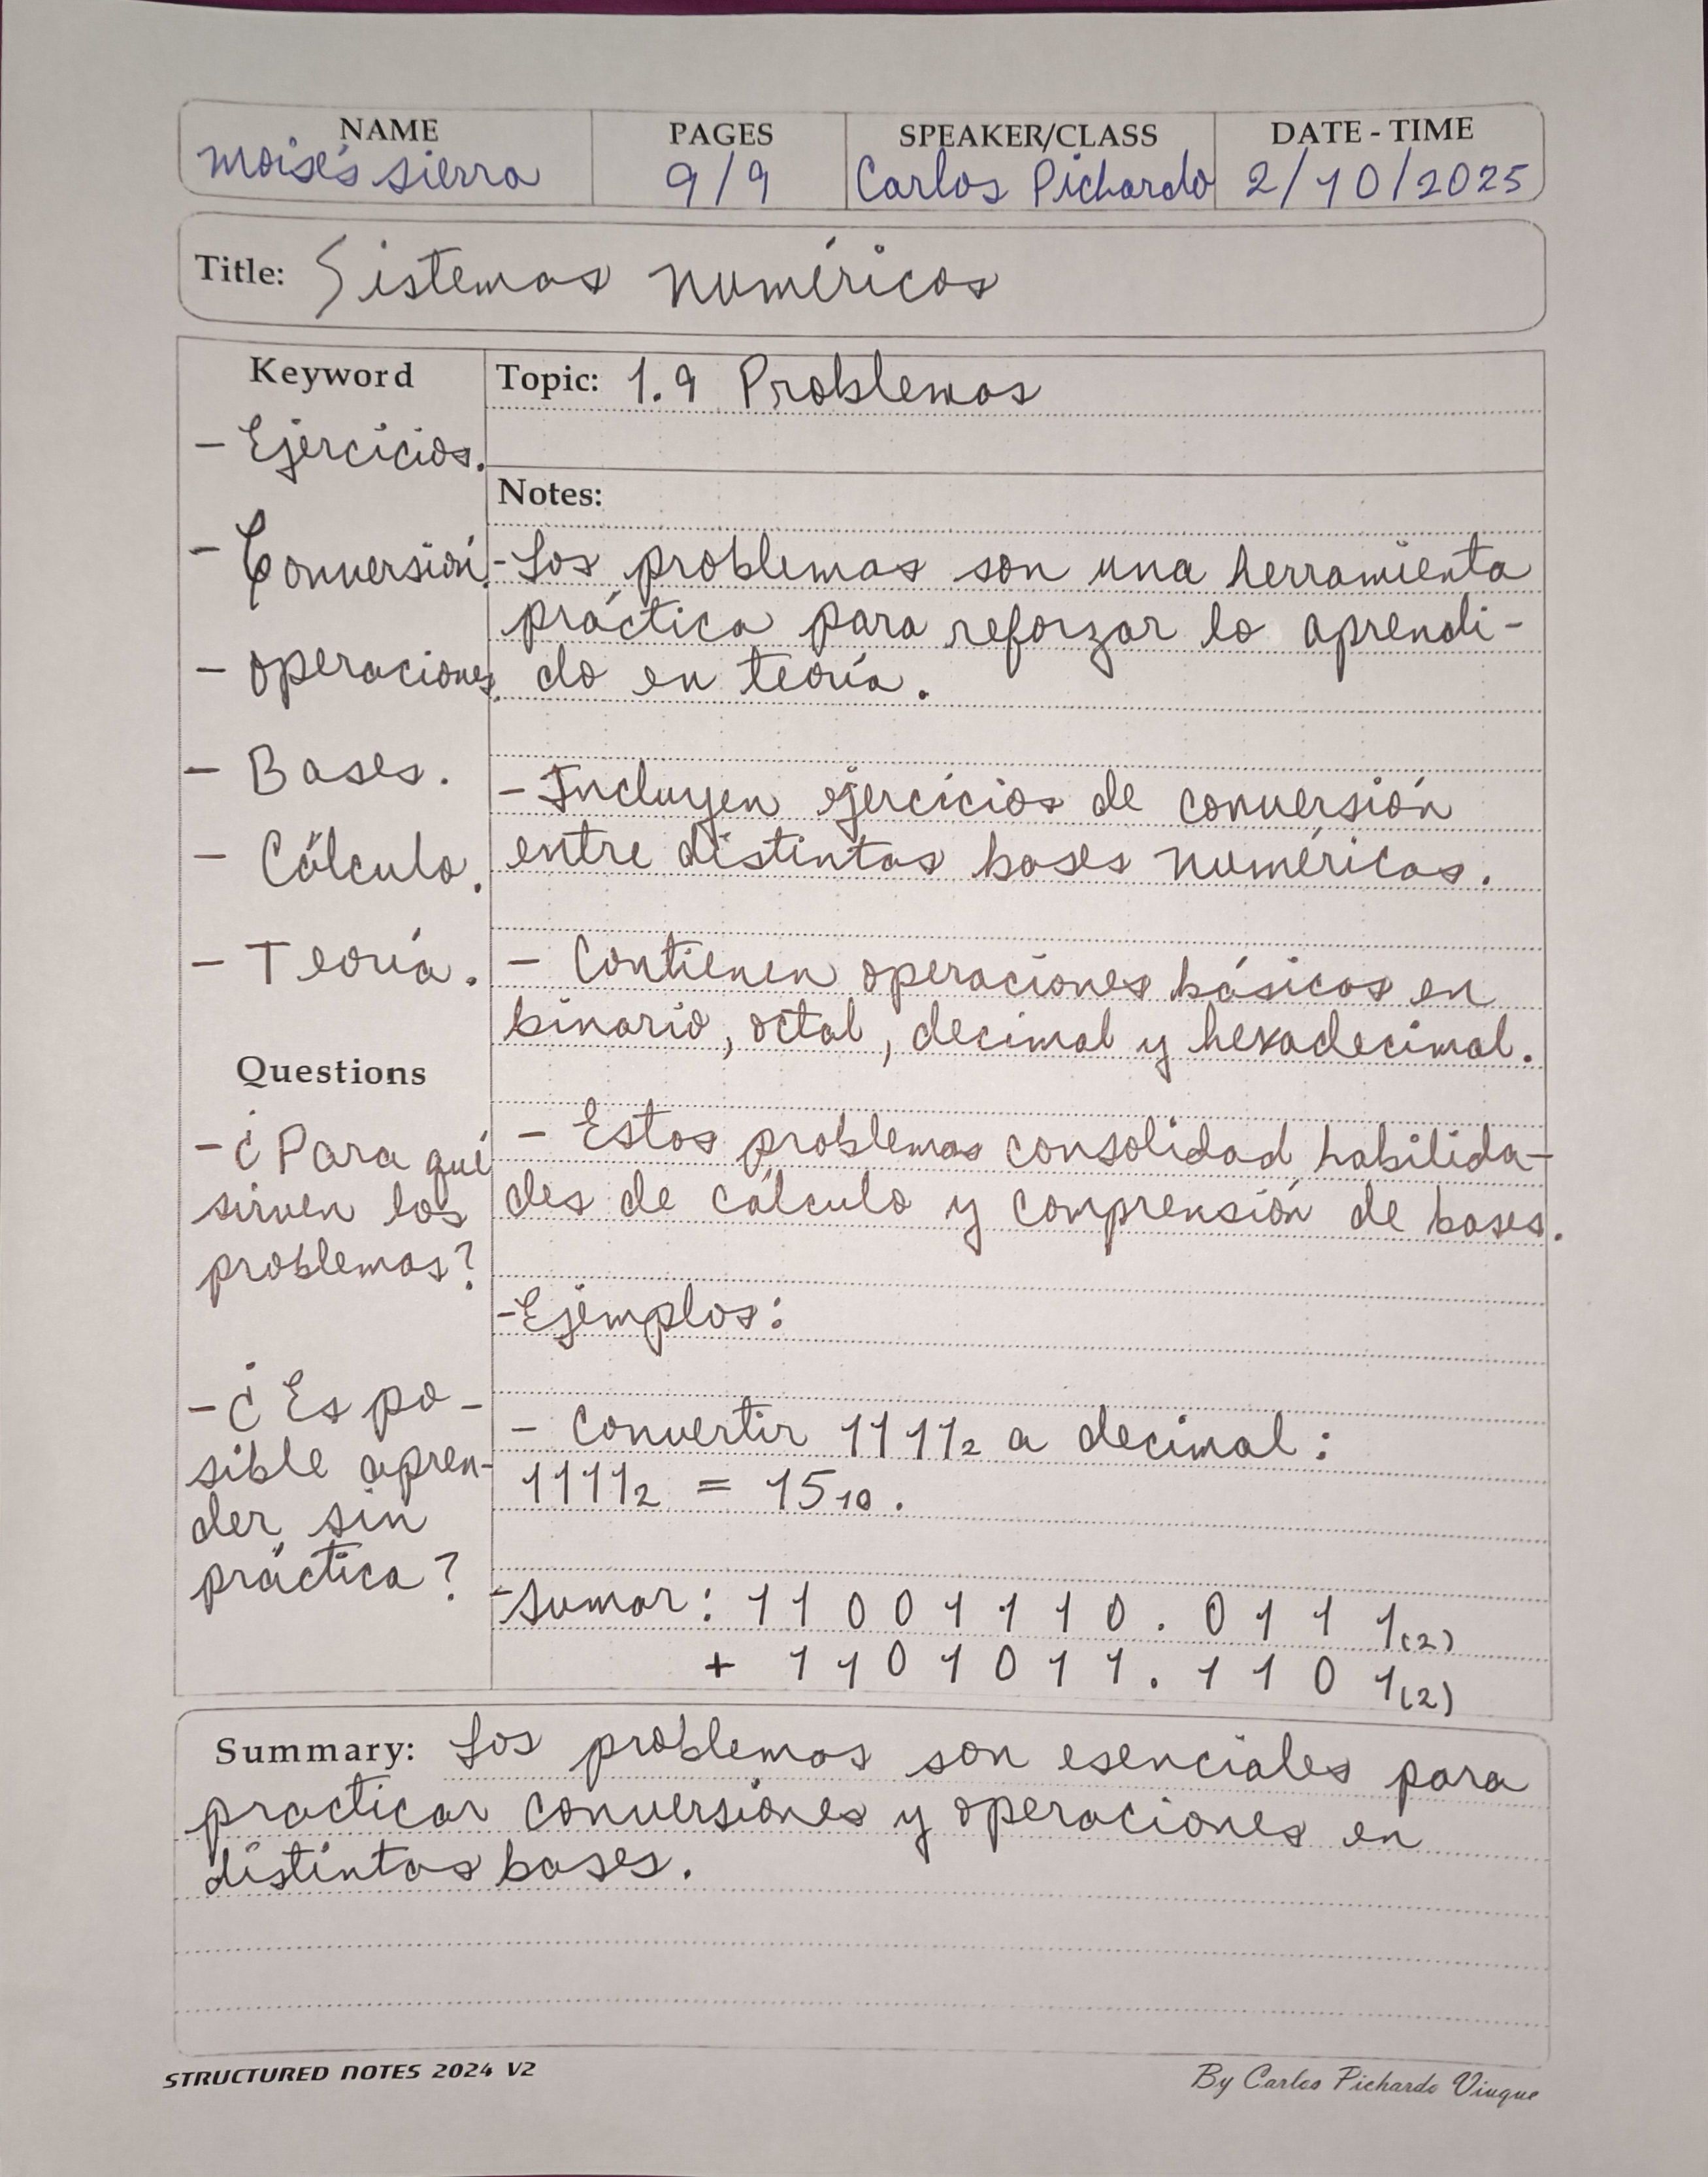 NAME PAGES SPEAKER/CLASS DATE - TIME
Moisés sierra 9/9 Carlos Pichardo 2/10/2025
Title: Sistemas numéricos
Keyword
- Ejercicios.
- Conversión.
- operaciones.
- Bases.
- Cálculo.
- Teoría.
Questions
- ¿Para qué
sirven los
problemas?
- ¿Es po-
sible apren-
der sin
práctica?
Topic: 1.9 Problemas
Notes:
- Los problemas son una herramienta
práctica para reforzar lo aprendi-
do en teoría.
- Incluyen ejercicios de conversión
entre distintas bases numéricas.
- Contienen operaciones básicas en
binario, octal, decimal y hexadecimal.
- Estos problemas consolidad habilida-
des de cálculo y comprensión de bases.
- Ejemplos:
- Convertir 1111₂ a decimal:
1111₂ = 15₁₀.
- Sumar: 11001110.0111(2)
+ 1101011.1101(2)
Summary: Los problemas son esenciales para
practicar conversiones y operaciones en
distintas bases.
STRUCTURED NOTES 2024 V2
By Carlos Pichardo Viuque